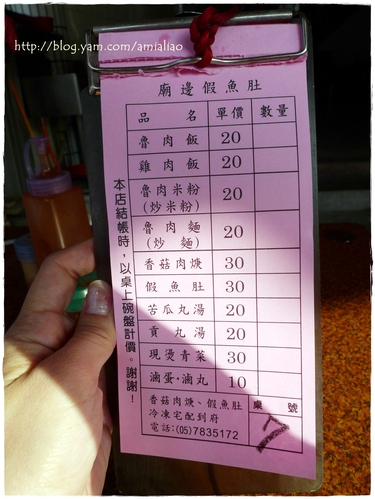 http://blog.yam.com/amialiao
廟邊假魚肚
品名 單價 數量
魯肉飯 20
雞肉飯 20
魯肉米粉
(炒米粉) 20
魯肉麵
(炒麵) 20
香菇肉焿 30
假魚肚 30
苦瓜丸湯 20
貢丸湯 20
現燙青菜 30
滷蛋·滷丸 10
香菇肉焿、假魚肚
冷凍宅配到府
電話:(05)7835172
桌號
本店結帳時,以桌上碗盤計價。謝謝!